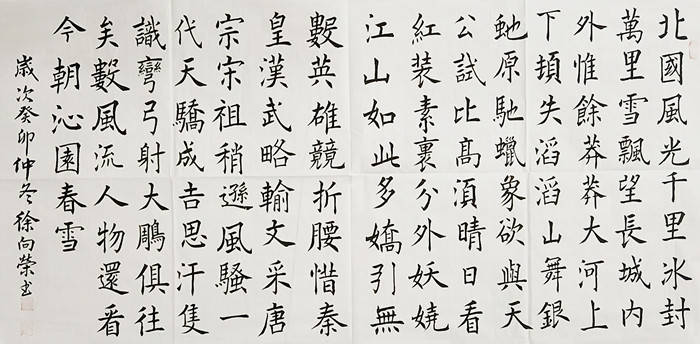 北國風光千里冰封
萬里雪飄望長城内
外惟餘莽莽大河上
下頓失滔滔山舞銀
虵原馳蠟象欲與天
公試比髙湏晴日看
紅装素裏分外妖嬈
江山如此多嬌引無
數英雄競折腰惜秦
皇漢武略輸文采唐
宗宋祖稍遜風騷一
代天驕成吉思汗隻
識彎弓射大鵰俱往
矣數風流人物還看
今朝沁園春雪
歲次癸卯仲冬徐向榮书